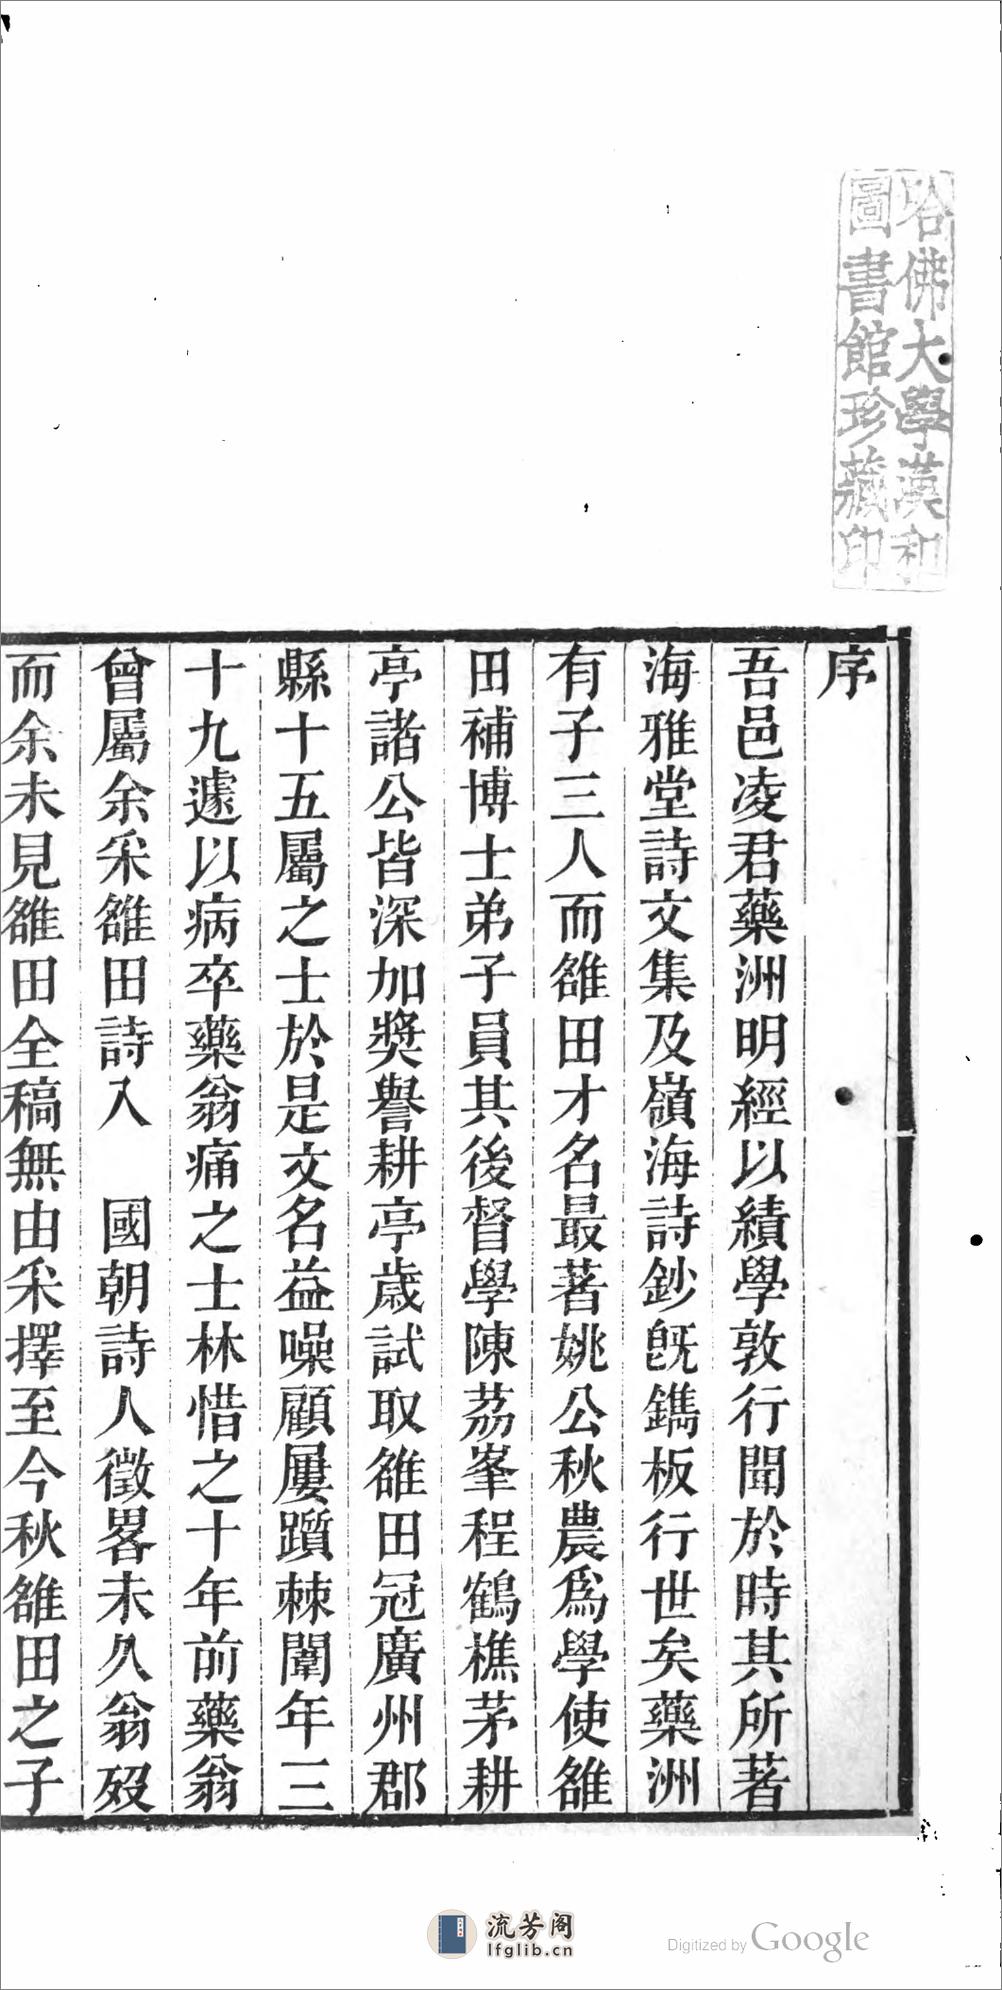 哈佛大學漢和
圖書館珍藏印
序
吾邑凌君藥洲明經以績學敦行聞於時其所著
海雅堂詩文集及嶺海詩鈔旣鐫板行世矣藥洲
有子三人而雒田才名最著姚公秋農爲學使雒
田補博士弟子員其後督學陳荔峯程鶴樵茅耕
亭諸公皆深加獎譽耕亭歲試取雒田冠廣州郡
縣十五屬之士於是文名益噪顧屢躓棘闈年三
十九遽以病卒藥翁痛之士林惜之十年前藥翁
曾屬余采雒田詩入　國朝詩人徵畧未久翁歿
而余未見雒田全稿無由采擇至今秋雒田之子
流芳阁
lfglib.cn
Digitized by Google